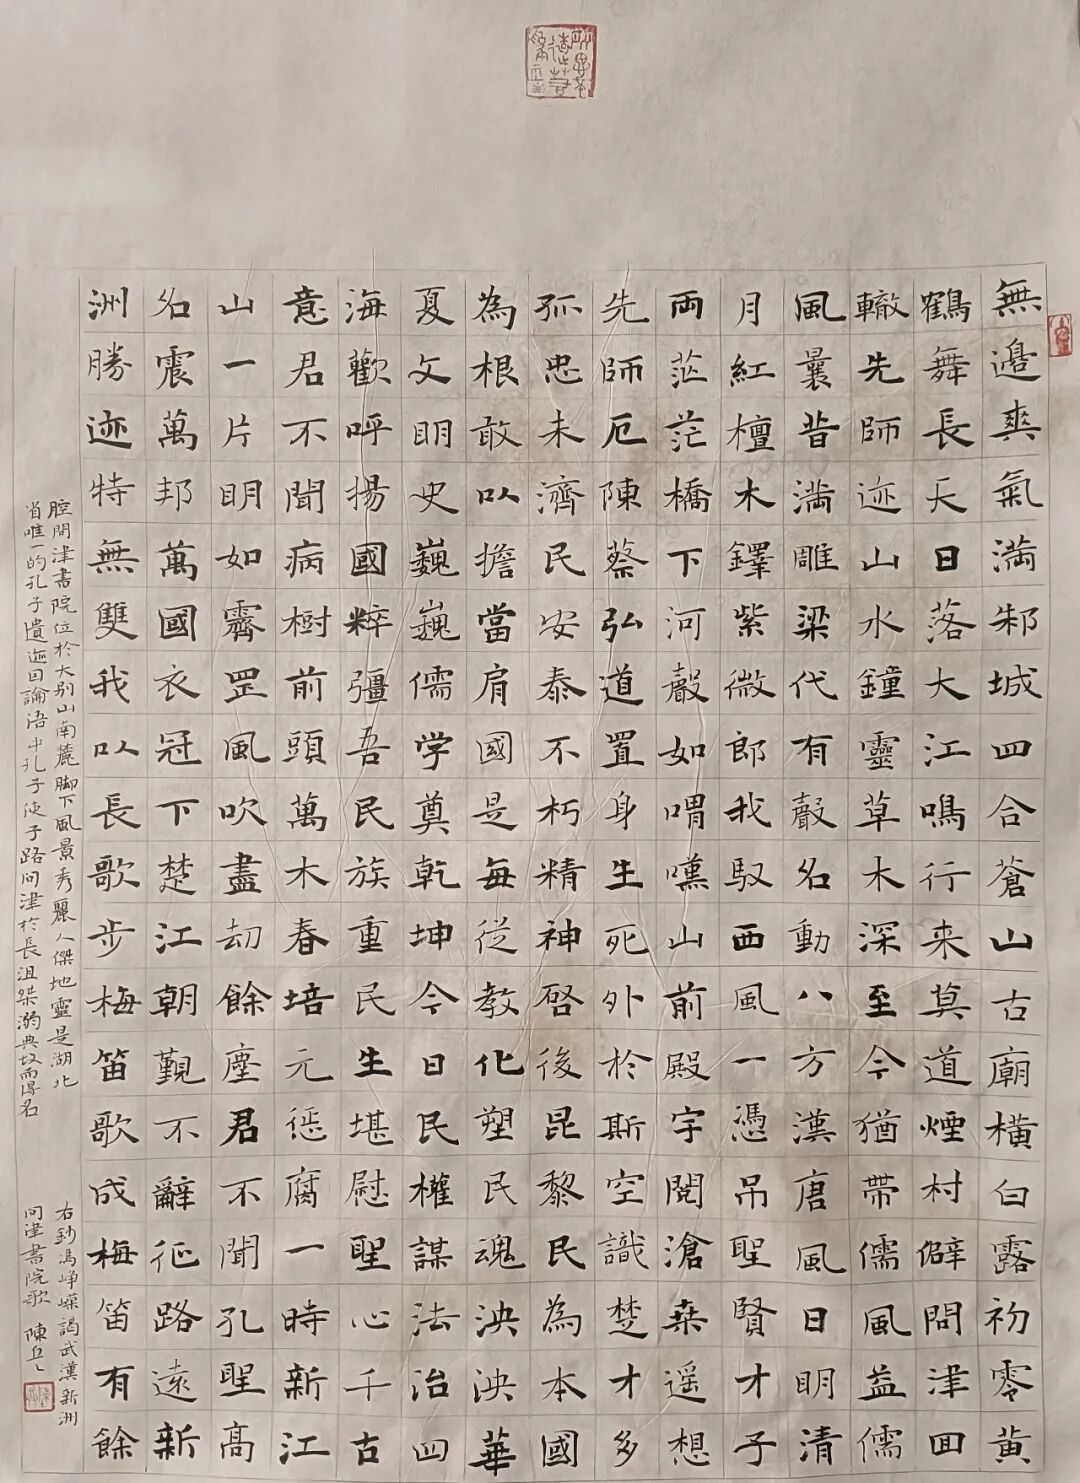 無邊爽氣滿邾城四合蒼山古廟橫白露初零黃
鶴舞長天日落大江鳴行来莫道煙村僻問津回
轍先師迹山水鐘靈草木深至今猶帶儒風益儒
風曩昔滿雕梁代有聲名動八方漢唐風日明清
月紅檀木鐸紫微郎我馭西風一憑吊聖賢才子
兩茫茫橋下河聲如喟嘆山前殿宇閱滄桒遥想
先師厄陳蔡弘道置身生死外於斯空識楚才多
孤忠未濟民安泰不朽精神啓後昆黎民為本國
為根敢以擔當肩國是每從教化塑民魂泱泱華
夏文明史巍巍儒学奠乾坤今日民權謀法治四
海歡呼揚國粹彊吾民族重民生堪慰聖心千古
意君不聞病樹前頭萬木春培元懲腐一時新江
山一片明如霽罡風吹盡劫餘塵君不聞孔聖高
名震萬邦萬國衣冠下楚江朝覲不辭征路遠新
洲勝迹特無雙我以長歌步梅笛歌成梅笛有餘
腔問津書院位於大別山南麓脚下風景秀麗人傑地靈是湖北
省唯一的孔子遺迹因論語中孔子使子路問津於長沮桀溺典故而得名
右鈔馮崢嶸謁武漢新洲
問津書院歌 陳